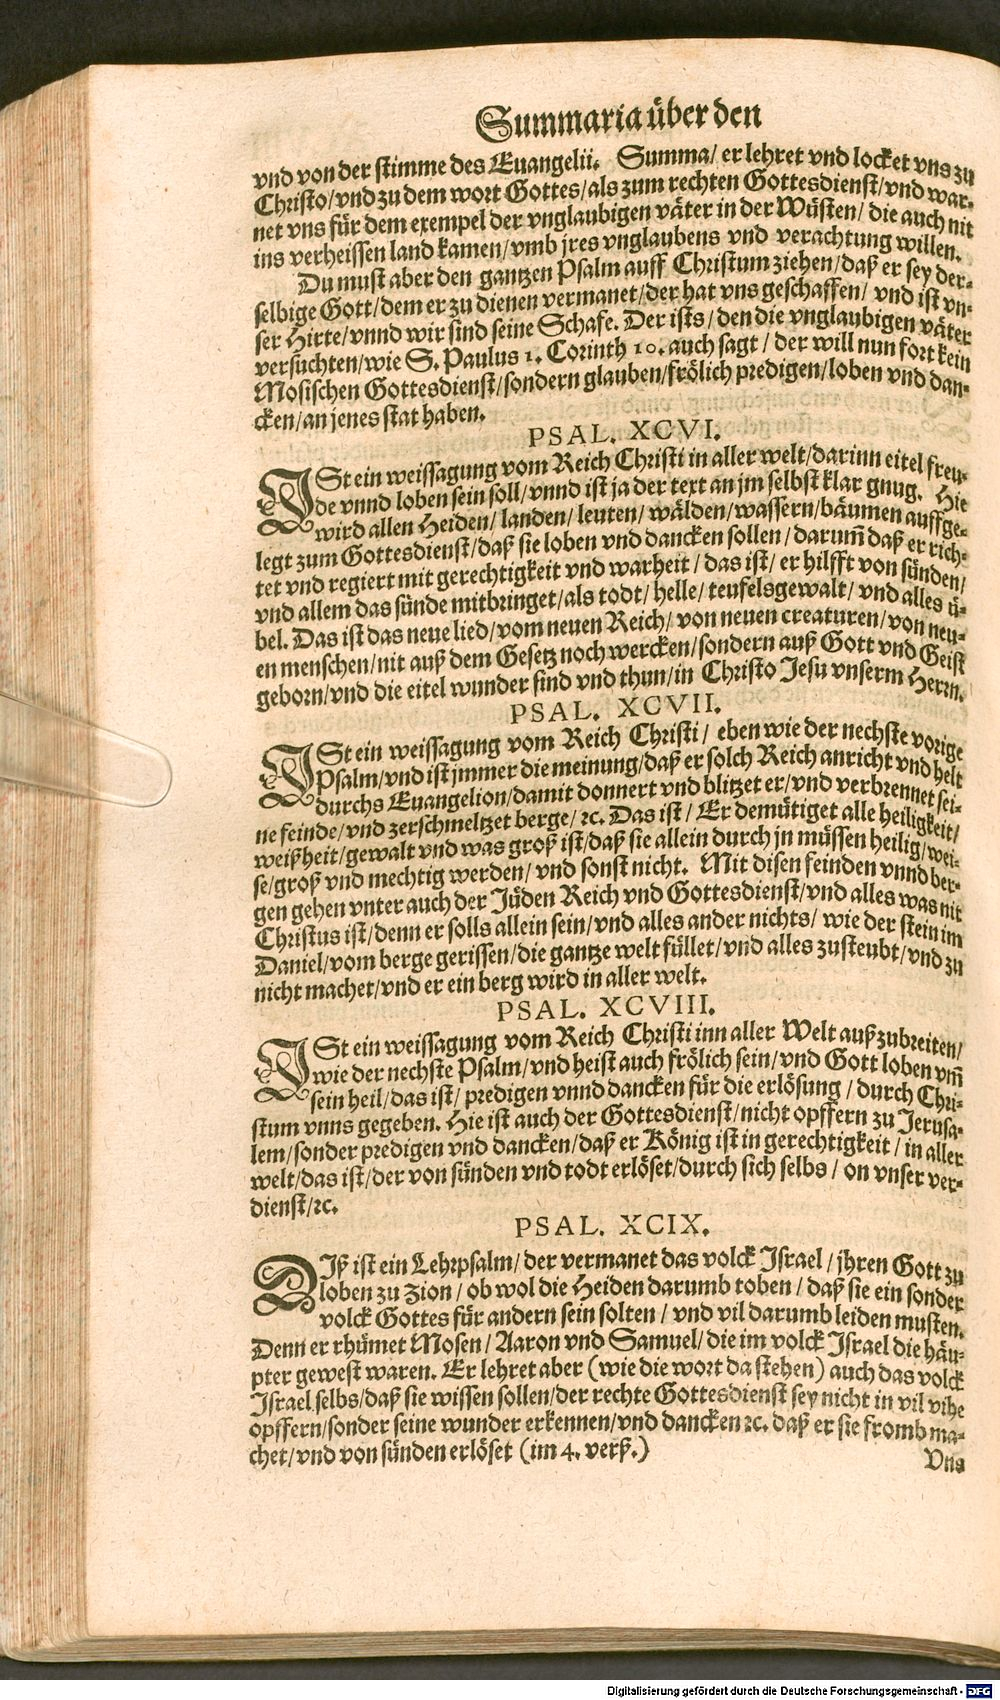 Summaria über den
vnd von der stimme des Euangelii. Summa/ er lehret vnd locket vns zu
Christo/vnd zu dem wort Gottes/als zum rechten Gottesdienst/vnd war-
net vns für dem exempel der vnglaubigen väter in der Wüsten/ die auch nit
ins verheissen land kamen/vmb jres vnglaubens vnd verachtung willen.
Du must aber den gantzen Psalm auff Christum ziehen/daß er sey der-
selbige Gott/dem er zu dienen vermanet/der hat vns geschaffen/ vnd ist vn-
ser Hirte/vnnd wir sind seine Schafe. Der ists/den die vnglaubigen väter
versuchten/wie S. Paulus 1. Corinth 10. auch sagt/ der will nun fort kein
Mosischen Gottesdienst/sondern glauben/frölich predigen/loben vnd dan-
cken/an jenes stat haben.
PSAL. XCVI.
ISt ein weissagung vom Reich Christi in aller welt/darinn eitel freu-
de vnnd loben sein soll/vnnd ist ja der text an jm selbst klar gnug. Hie
wird allen Heiden/ landen/ leuten/ wälden/wassern/bäumen auffge-
legt zum Gottesdienst/daß sie loben vnd dancken sollen/ darum̃ daß er rich-
tet vnd regiert mit gerechtigkeit vnd warheit/ das ist/ er hilfft von sünden/
vnd allem das sünde mitbringet/als todt/ helle/ teufelsgewalt/ vnd alles ü-
bel. Das ist das neue lied/vom neuen Reich/ von neuen creaturen/von neu-
en menschen/nit auß dem Gesetz noch wercken/sondern auß Gott vnd Geist
geborn/vnd die eitel wunder sind vnd thun/in Christo Jesu vnserm Herrn.
PSAL. XCVII.
ISt ein weissagung vom Reich Christi/ eben wie der nechste vorige
Psalm/vnd ist jmmer die meinung/daß er solch Reich anricht vnd helt
durchs Euangelion/damit donnert vnd blitzet er/vnd verbrennet sei-
ne feinde/vnd zerschmeltzet berge/ ꝛc. Das ist/ Er demütiget alle heiligkeit/
weißheit/gewalt vnd was groß ist/daß sie allein durch jn müssen heilig/wei-
se/groß vnd mechtig werden/ vnd sonst nicht. Mit disen feinden vnnd ber-
gen gehen vnter auch der Jüden Reich vnd Gottesdienst/vnd alles was nit
Christus ist/denn er solls allein sein/vnd alles ander nichts/ wie der stein im
Daniel/vom berge gerissen/die gantze welt füllet/vnd alles zusteubt/vnd zu
nicht machet/vnd er ein berg wird in aller welt.
PSAL. XCVIII.
ISt ein weissagung vom Reich Christi inn aller Welt außzubreiten/
wie der nechste Psalm/vnd heist auch frölich sein/vnd Gott loben vm̃
sein heil/das ist/ predigen vnnd dancken für die erlösung/ durch Chri-
stum vnns gegeben. Hie ist auch der Gottesdienst/nicht opffern zu Jerusa-
lem/sonder predigen vnd dancken/daß er König ist in gerechtigkeit/ in aller
welt/das ist/der von sünden vnd todt erlöset/durch sich selbs/ on vnser ver-
dienst/ꝛc.
PSAL. XCIX.
DIß ist ein Lehrpsalm/ der vermanet das volck Israel/ jhren Gott zu
loben zu Zion/ ob wol die Heiden darumb toben/ daß sie ein sonder
volck Gottes für andern sein solten/ vnd vil darumb leiden musten.
Denn er rhümet Mosen/ Aaron vnd Samuel/ die im volck Israel die häu-
pter gewest waren. Er lehret aber (wie die wort da stehen) auch das volck
Israel selbs/daß sie wissen sollen/der rechte Gottesdienst sey nicht in vil vihe
opffern/sonder seine wunder erkennen/vnd dancken ꝛc. daß er sie fromb ma-
chet/vnd von sünden erlöset (im 4. verß.)
Vns
Digitalisierung gefördert durch die Deutsche Forschungsgemeinschaft - DFG